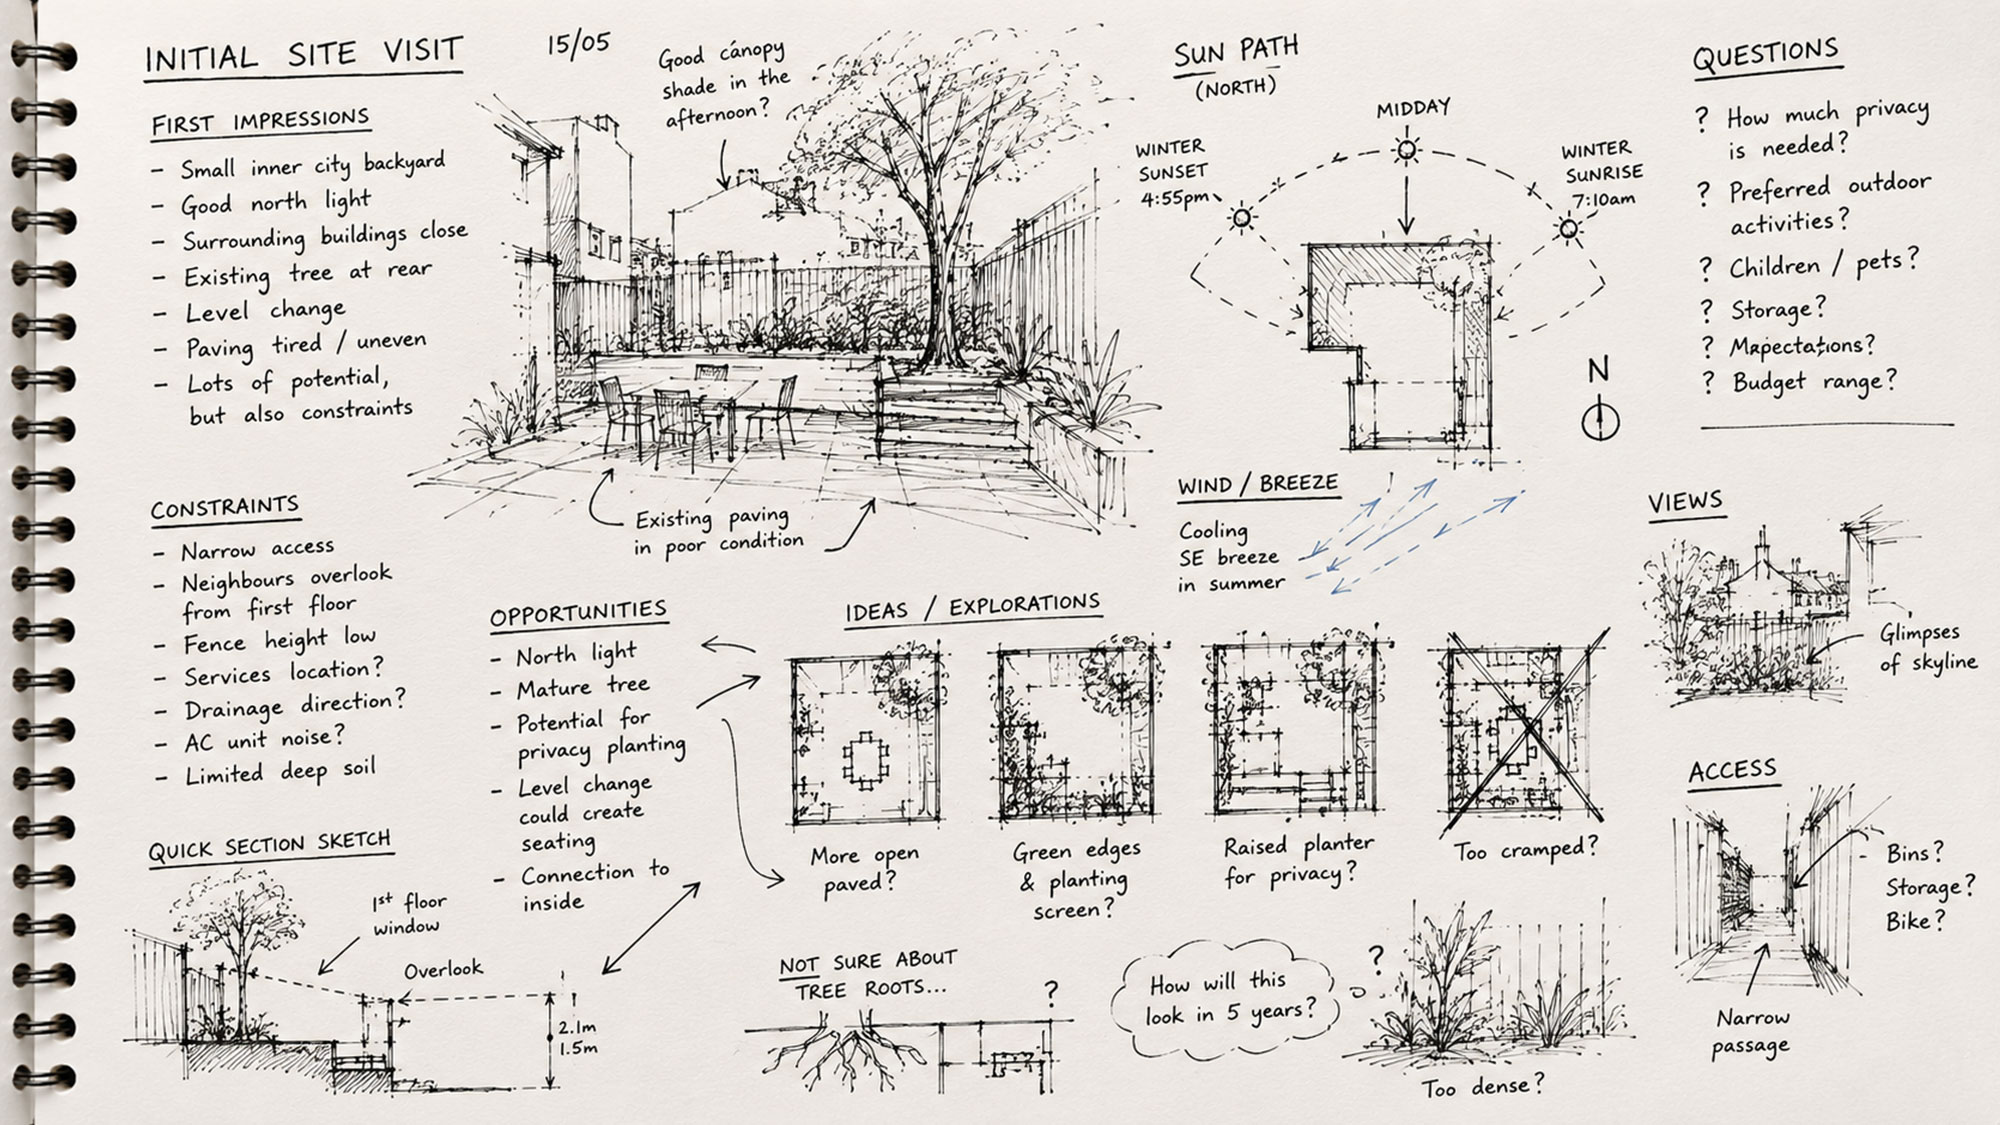 INITIAL SITE VISIT
15/05
FIRST IMPRESSIONS
- Small inner city backyard
- Good north light
- Surrounding buildings close
- Existing tree at rear
- Level change
- Paving tired / uneven
- Lots of potential,
but also constraints
Good canopy
shade in the
afternoon?
Existing paving
in poor condition
SUN PATH
(NORTH)
MIDDAY
WINTER
SUNSET
4:55pm
WINTER
SUNRISE
7:10am
N
QUESTIONS
? How much privacy
is needed?
? Preferred outdoor
activities?
? Children / pets?
? Storage?
?
? Budget range?
CONSTRAINTS
- Narrow access
- Neighbours overlook
from first floor
- Fence height low
- Services location?
- Drainage direction?
- AC unit noise?
- Limited deep soil
OPPORTUNITIES
- North light
- Mature tree
- Potential for
privacy planting
- Level change
could create
seating
- Connection to
inside
WIND / BREEZE
Cooling
SE breeze
in summer
VIEWS
Glimpses
of skyline
IDEAS / EXPLORATIONS
More open
paved?
Green edges
& planting
screen?
Raised planter
for privacy?
Too cramped?
ACCESS
- Bins?
Storage?
Bike?
Narrow
passage
QUICK SECTION SKETCH
1st floor
window
Overlook
2.1m
1.5m
NOT SURE ABOUT
TREE ROOTS...
?
How will this
look in 5 years?
?
Too dense?